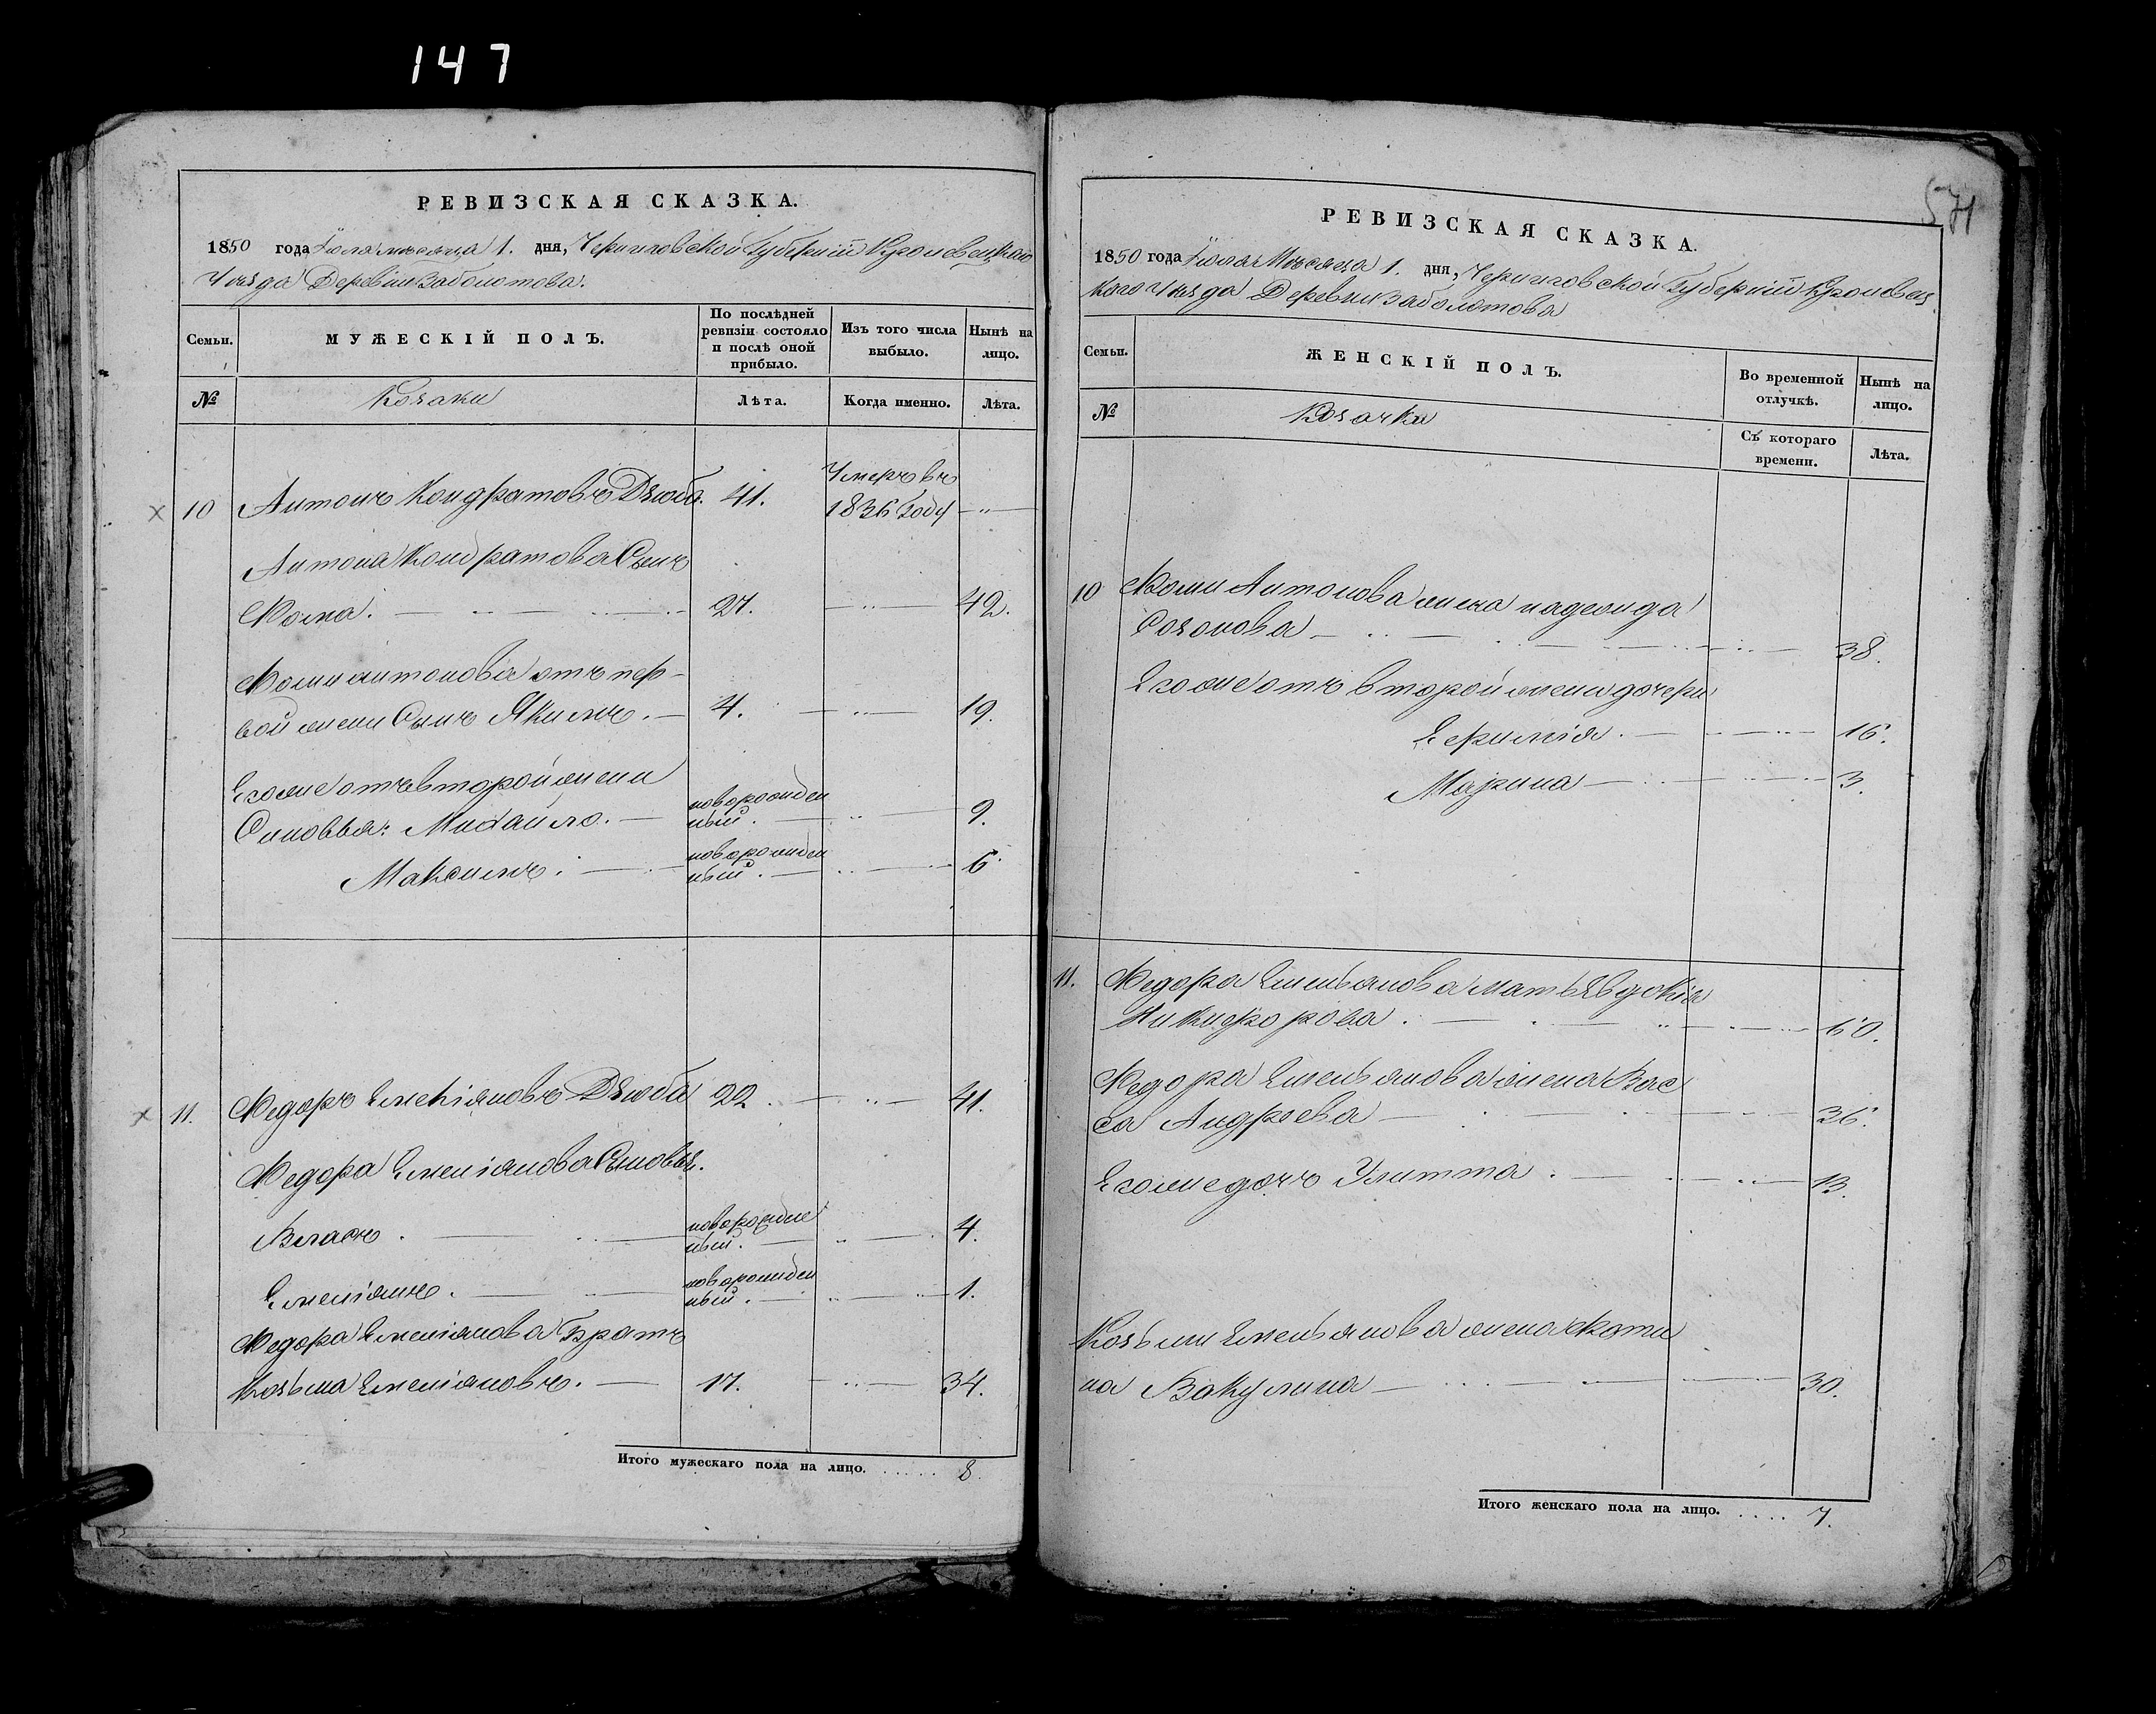 147
РЕВИЗСКАЯ СКАЗКА.
1850 года Іюля месяца 1. дня, Черниговской Губерніи Кролевецкаго
Уезда Деревни Заболотова.
Семьи. МУЖЕСКІЙ ПОЛЪ. По послѣдней ревизіи состояло и послѣ оной прибыло. Изъ того числа выбыло. Нынѣ на лицо.
№ Козаки Лѣта. Когда именно. Лѣта.
Умеръ въ
10 Антонъ Кондратовъ Дзюба. 41. 1836 Году — " —
Антона Кондратова Сынъ
Фома. 27. 42.
Фомы антонова отъ пер-
вой жены Сынъ Якимъ. 4. 19.
Егоже отъ второй жены
Синовья: Михайло. новорожден ный. 9.
Максимъ. новорожден ный. 6.
11. Федоръ Емеліяновъ Дзюба 22. 41.
Федора Емеліянова Сыновья.
Власъ. новорожден ный. 4.
Емеліянъ. новорожден ный. 1.
Федора Емеліянова Братъ
Козьма Емеліяновъ. 17. 34.
Итого мужескаро пола на лицо. . . . . . 8.
571
РЕВИЗСКАЯ СКАЗКА.
1850 года Іюля Месяца 1. дня, Черниговской Губерніи Кролевец
каго Уезда Деревни Заболотова
Семьи. ЖЕНСКІЙ ПОЛЪ. Во временной отлучкѣ. Нынѣ на лицо.
№ Козачки Съ котораго времени. Лѣта.
10 Фомы Антонова жена надежда
Созонова 38.
Егоже отъ второй жены дочери
Ефимія. 16.
Марина 3.
11. Федора Емельянова мать Евдокія
Никифорова. 60.
Федора Емельянова жена Вас
са Андреева 36.
Егоже дочъ Улитта. 13.
Козьмы Емельянова жена Екати
на Вакулина 30.
Итого женскаго пола на лицо. . . . . 7.